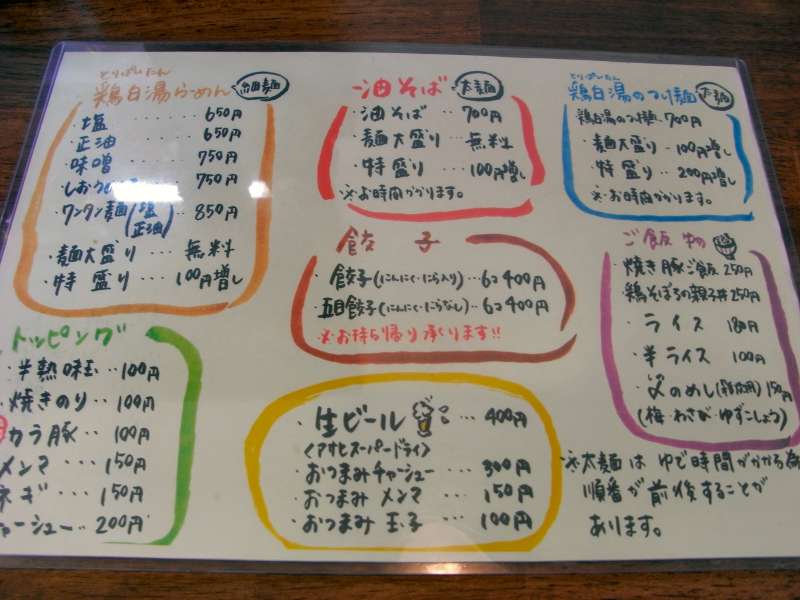 とりぱいたん
鶏白湯らーめん 細麺
・塩 ........ 650円
・正油 ...... 650円
・味噌 ...... 750円
・しおつ 750円
・ワンタン麺(塩 正油) ・・850円
・麺大盛り ・・ 無料
・特盛り ・・ 100円増し
油そば 太麺
・油そば ・・・ 700円
・麺大盛り ・・ 無料
・特盛り ・・・ 100円増し
※お時間かかります。
とりぱいたん
鶏白湯のつけ麺 太麺
鶏白湯のつけ麺・・700円
・麺大盛り・・100円増し
・特盛り・・・200円増し
※お時間かかります。
餃子
・餃子(にんにく・にら入り)・・6コ400円
・五目餃子(にんにく・にらなし)・・6コ400円
※お持ち帰り承ります!!
ご飯物
・焼き豚ご飯 250円
・鶏そぼろの親子丼250円
・ライス 180円
・半ライス 100円
・〆のめし(雑炊用)150円
(梅・わさび・ゆずこしょう)
トッピング
・半熟味玉・・100円
・焼きのり・・100円
カラ豚・・100円
メンマ・・150円
ネギ・・150円
チャーシュー・・200円
・生ビール ・・・ 400円
〈アサヒスーパードライ〉
・おつまみチャーシュー ・・・ 300円
・おつまみ メンマ ・・・ 150円
・おつまみ 玉子 ・・・ 100円
※太麺は ゆで時間がかかる為
順番が前後することが
あります。